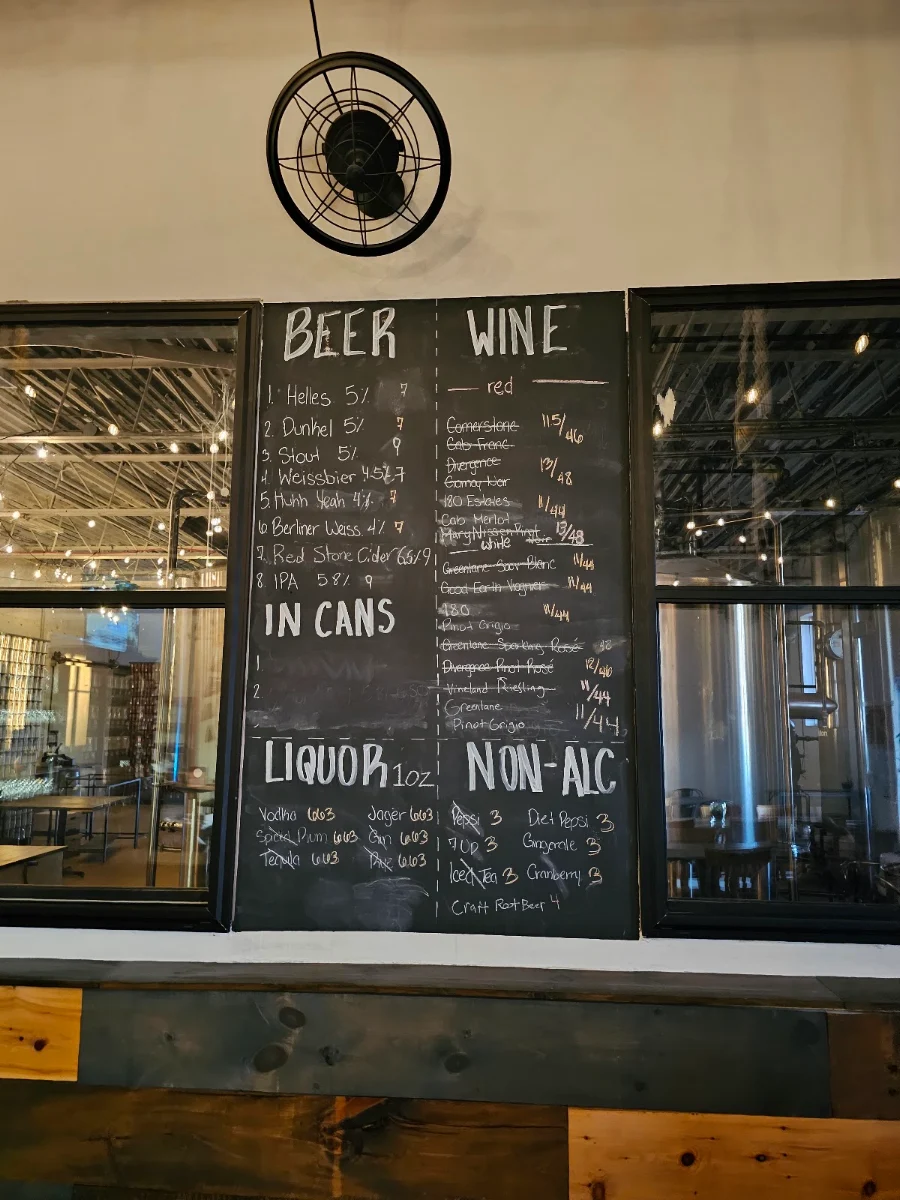 BEER
1. Helles 5% 7
2. Dunkel 5% 7
3. Stout 5% 9
4. Weissbier 4.5% 7
5. Huhh Yeah 4% 7
6 Berliner Weiss. 4% 7
7. Red Stone Cider 6.5% 9
8 IPA 5.8% 9
IN CANS
1
2
WINE
red
Cornerstone 11.5/46
Cab Franc
Divergence 13/48
Gamay Noir
180 Estates 11/44
Cab Merlot
Mary Nissen Pinot Noir 13/48
white
Greenlane Sauv Blanc 11/44
Good Earth Viognier 11/44
180 11/44
Pinot Grigio
Greenlane Sparkling Rosé
Divergence Pinot Rosé 12/46
Vineland Riesling 11/44
Greenlane 11/44
Pinot Grigio
LIQUOR 1oz
Vodka 6.63 Jager 6.63
Spiced Rum 6.63 Gin 6.63
Tequila 6.63 6.63
NON-ALC
Pepsi 3 Diet Pepsi 3
7 Up 3 Gingerale 3
Iced Tea 3 Cranberry 3
Craft Root Beer 4